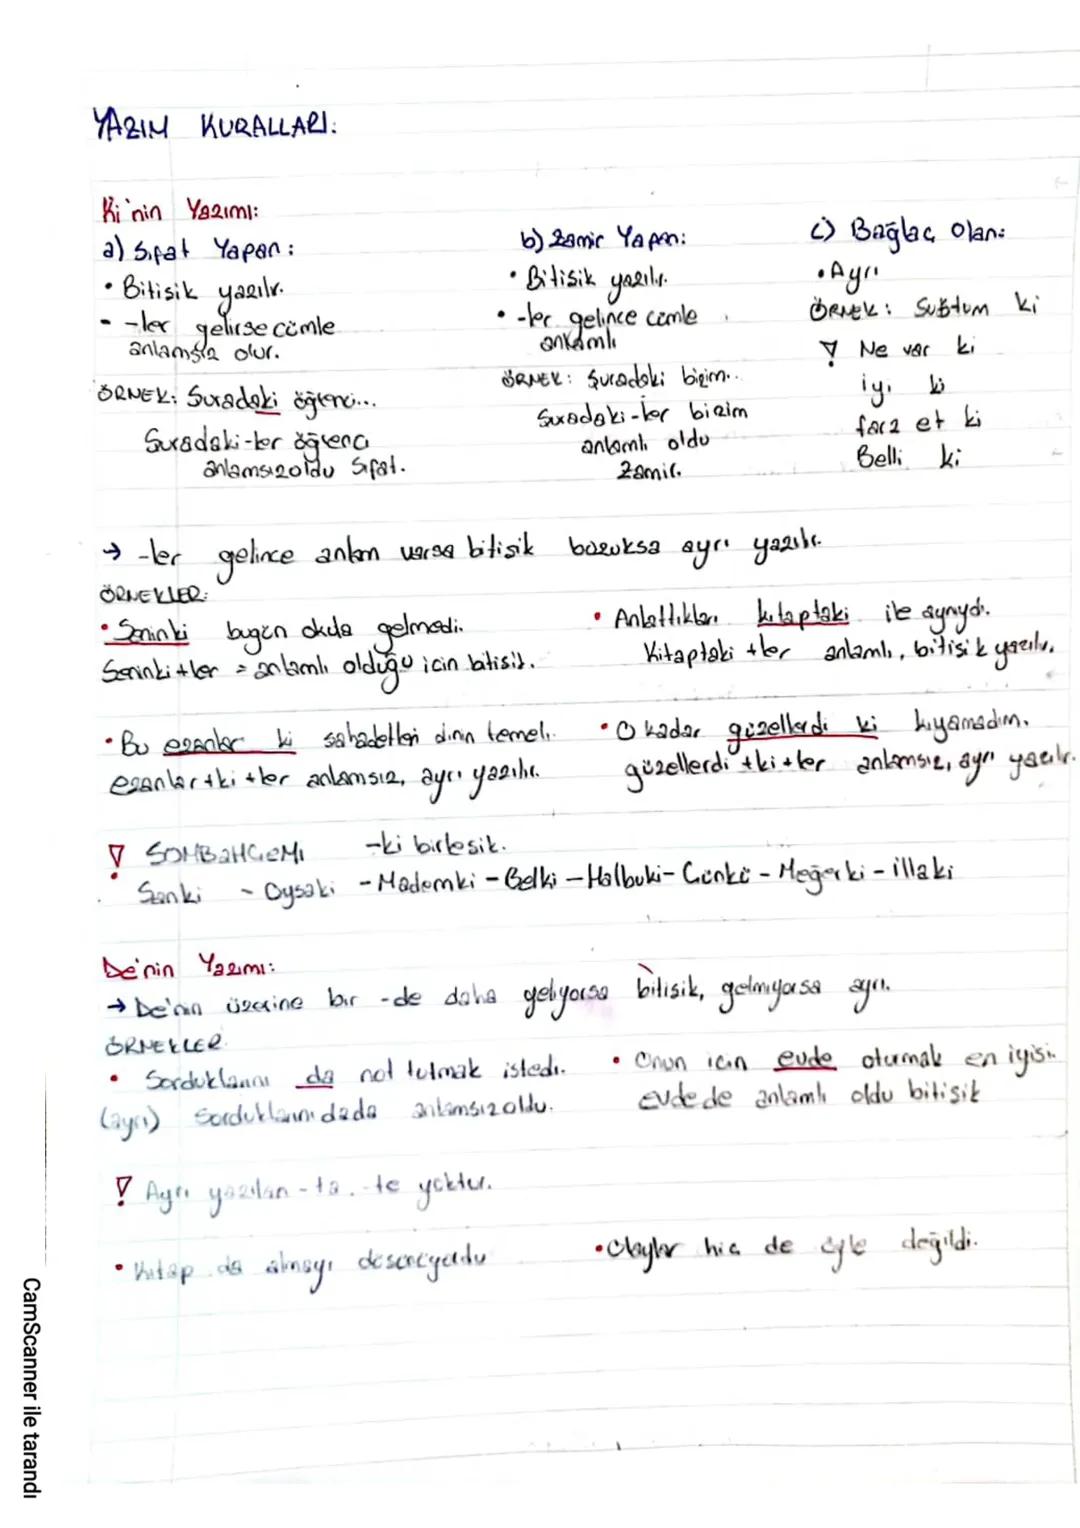 YAZIM KURALLARI:
Ki'nin Yazımı:
a) Sıfat Yapan:
• Bitişik yazılır.
• -ler gelirse cümle
anlamsız olur.
ÖRNEK: Şuradaki öğrenci...
Şuradaki-ler öğrenci
anlamsız oldu Sıfat.
b) Zamir Yapan:
• Bitişik yazılır.
• -ler gelince cümle
anlamlı
ÖRNEK: Şuradaki bizim..
Şuradaki-ler bizim
anlamlı oldu
Zamir.
c) Bağlaç Olan:
• Ayrı
ÖRNEK: ki
Ne var ki
iyi ki
farz et ki
Belli ki
→ -ler gelince anlam varsa bitişik bozuksa ayrı yazılır.
ÖRNEKLER:
• Seninki bugün okula gelmedi.
Seninki+ler = anlamlı olduğu için bitişik.
• Anlattıkları kitaptaki ile aynıydı.
Kitaptaki +ler anlamlı, bitişik yazılır.
• Bu ezanlar ki şahadetleri dinin temeli.
ezanlar+ki+ler anlamsız, ayrı yazılır.
• O kadar güzellerdi ki kıyamadım.
güzellerdi +ki+ler anlamsız, ayrı yazılır.
! SOMBaHÇeMi -ki birleşik.
Sanki - Oysaki - Mademki - Belki - Halbuki - Çünkü - Meğerki - illaki
De'nin Yazımı:
→ De'nin üzerine bir -de daha geliyorsa bitişik, gelmiyorsa ayrı.
ÖRNEKLER
• Sorduklarını da not tutmak istedi.
(ayrı) Sorduklarınıdada anlamsız oldu.
• Onun için evde oturmak en iyisi.
Evdede anlamlı oldu bitişik
! Ayrı yazılan -ta. -te yoktur.
• Kitap da almayı
• Olaylar hiç de öyle değildi.
CamScanner ile tarandı